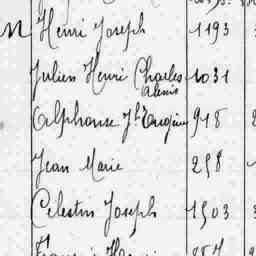 M Henri Joseph 1193
Julien Henri Charles 1031
Alexis
Alphonse Jh Eugène 918
Jean Marie 298
Célestin Joseph 1503
Henri 257